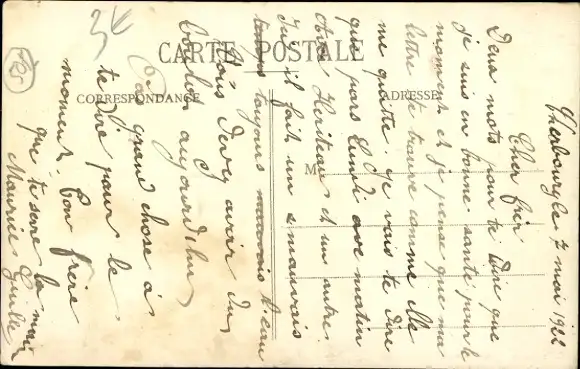 3€
CARTE POSTALE
CORRESPONDANCE
ADRESSE
M
Cherbourg le 7 mai 1922
Cher frère
Deux mots pour te dire que
je suis en bonne santé pour le
moment et je pense que ma
lettre te trouve comme elle
me quitte. Je vais te dire
que pars Lundi matin
et un autre.
Ici il fait un mauvais
toujours mauvais
Vous devez avoir du
aujourd'hui
Pas grand chose à
te dire pour le
moment. Ton frère
que te serre la main
Maurice